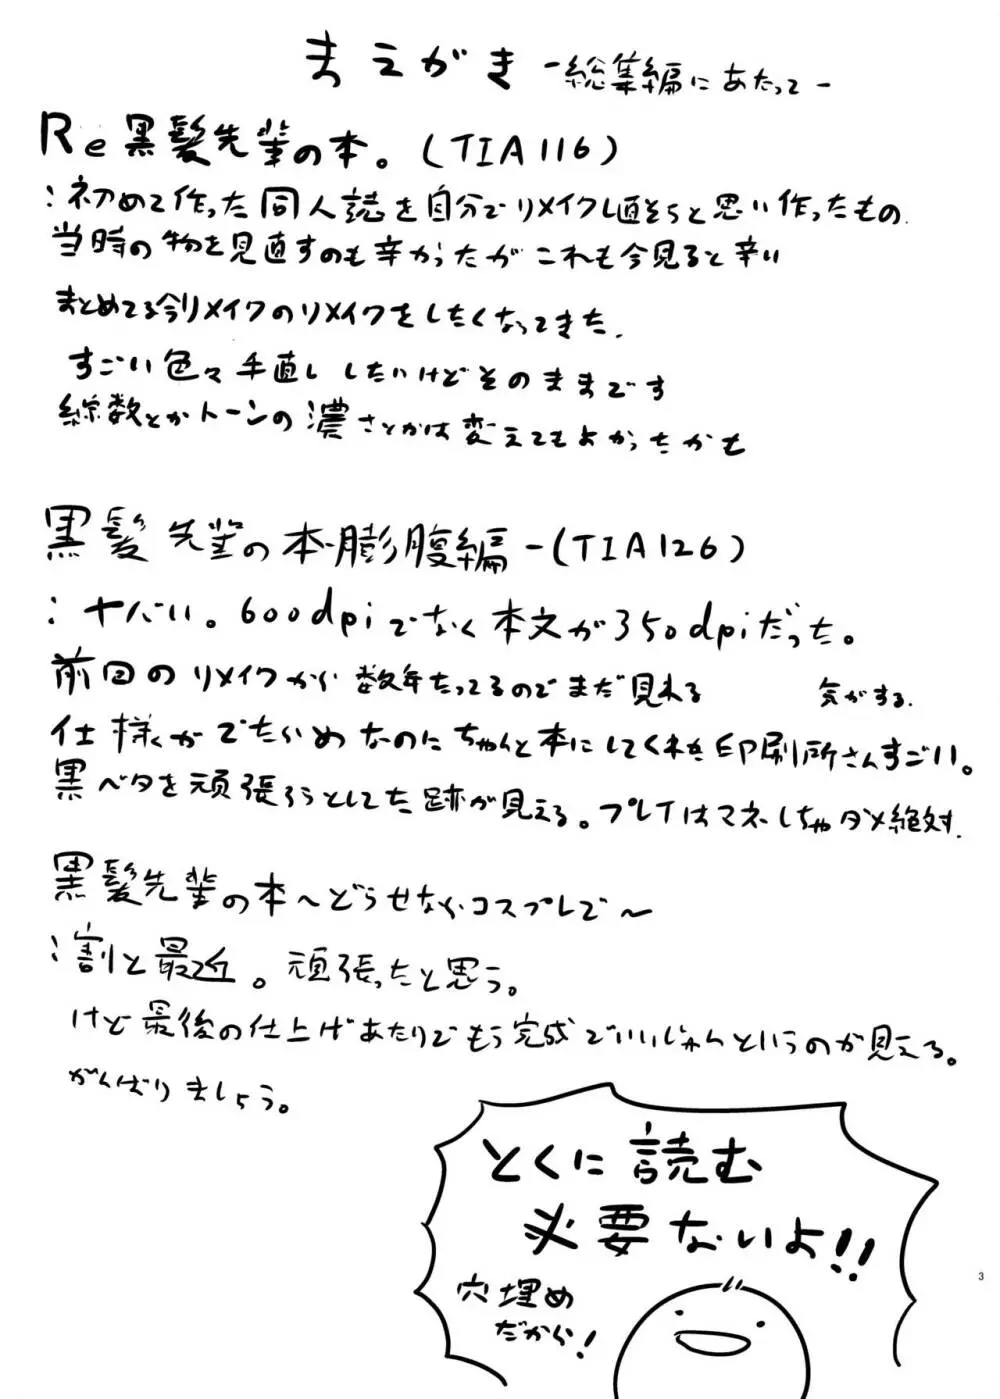 まえがき -総集編にあたって-
Re黒髪先輩の本。(TIA116)
:初めて作った同人誌を自分でリメイクし直そうと思い作ったもの.
当時の物を見直すのも辛かったがこれも今見ると辛い
まとめてる今リメイクのリメイクをしたくなってきた.
すごい色々手直ししたいけどそのままです
線数とかトーンの濃さとかは変えてもよかったかも
黒髪先輩の本-膨腹編-(TIA126)
:ヤバい。600dpiでなく本文が350dpiだった。
前回のリメイクから数年たってるのでまだ見れる 気がする.
仕様がでたらめなのにちゃんと本にしてくれた印刷所さんすごい。
黒ベタを頑張ろうとしてた跡が見える。プレイはマネしちゃダメ絶対.
黒髪先輩の本〜どうせならコスプレで〜
:割と最近。頑張ったと思う。
けど最後の仕上げあたりでもう完成でいいじゃんというのが見える。
がんばりましょう。
とくに読む
必要ないよ!!
穴埋め
だから!
3